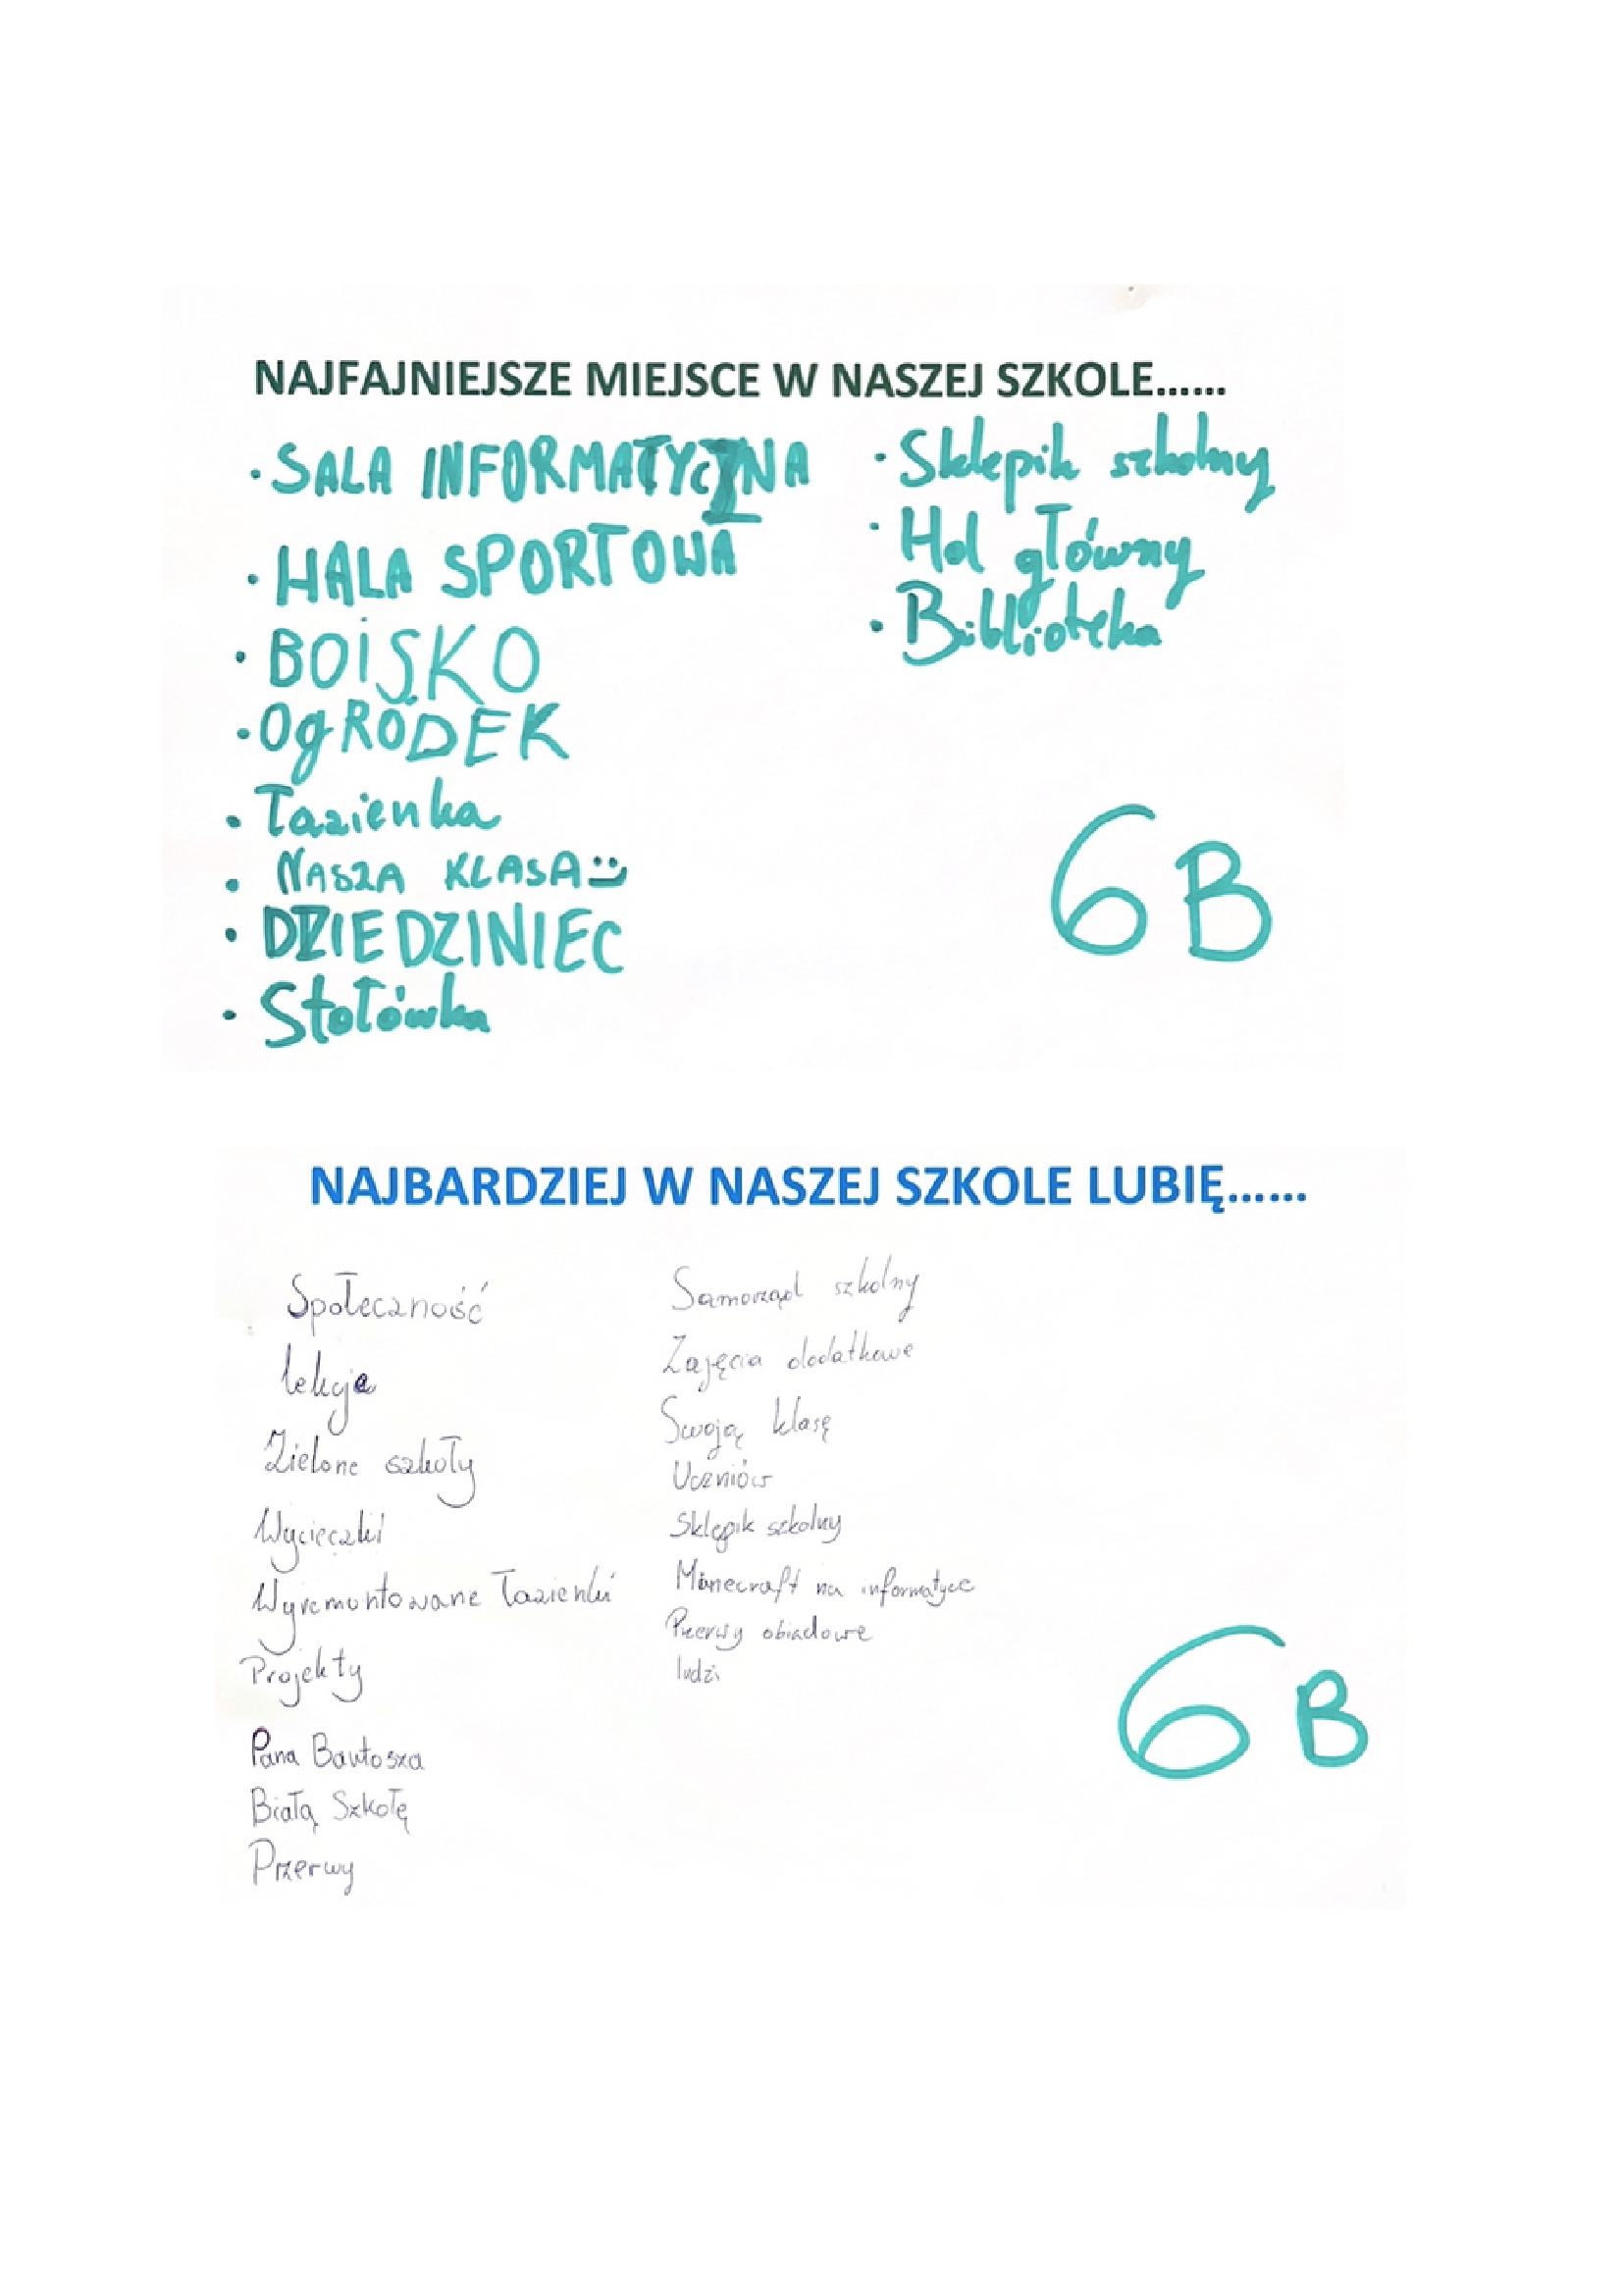 NAJFAJNIEJSZE MIEJSCE W NASZEJ SZKOLE......
· SALA INFORMATYCZNA
· HALA SPORTOWA
· BOISKO
· OgRÓDEK
· Łazienka
· NASZA KLASA :)
· DZIEDZINIEC
· Stołówka
· Sklepik szkolny
· Hol główny
· Biblioteka
6B
NAJBARDZIEJ W NASZEJ SZKOLE LUBIĘ......
Społeczność
lekcje
Zielone szkoły
Wycieczki
Wyremontowane łazienki
Projekty
Pana Bartosza
Białą Szkołę
Przerwy
Samorząd szkolny
Zajęcia dodatkowe
Swoją klasę
Uczniów
Sklepik szkolny
Minecraft na informatyce
Przerwy obiadowe
ludzi
6B